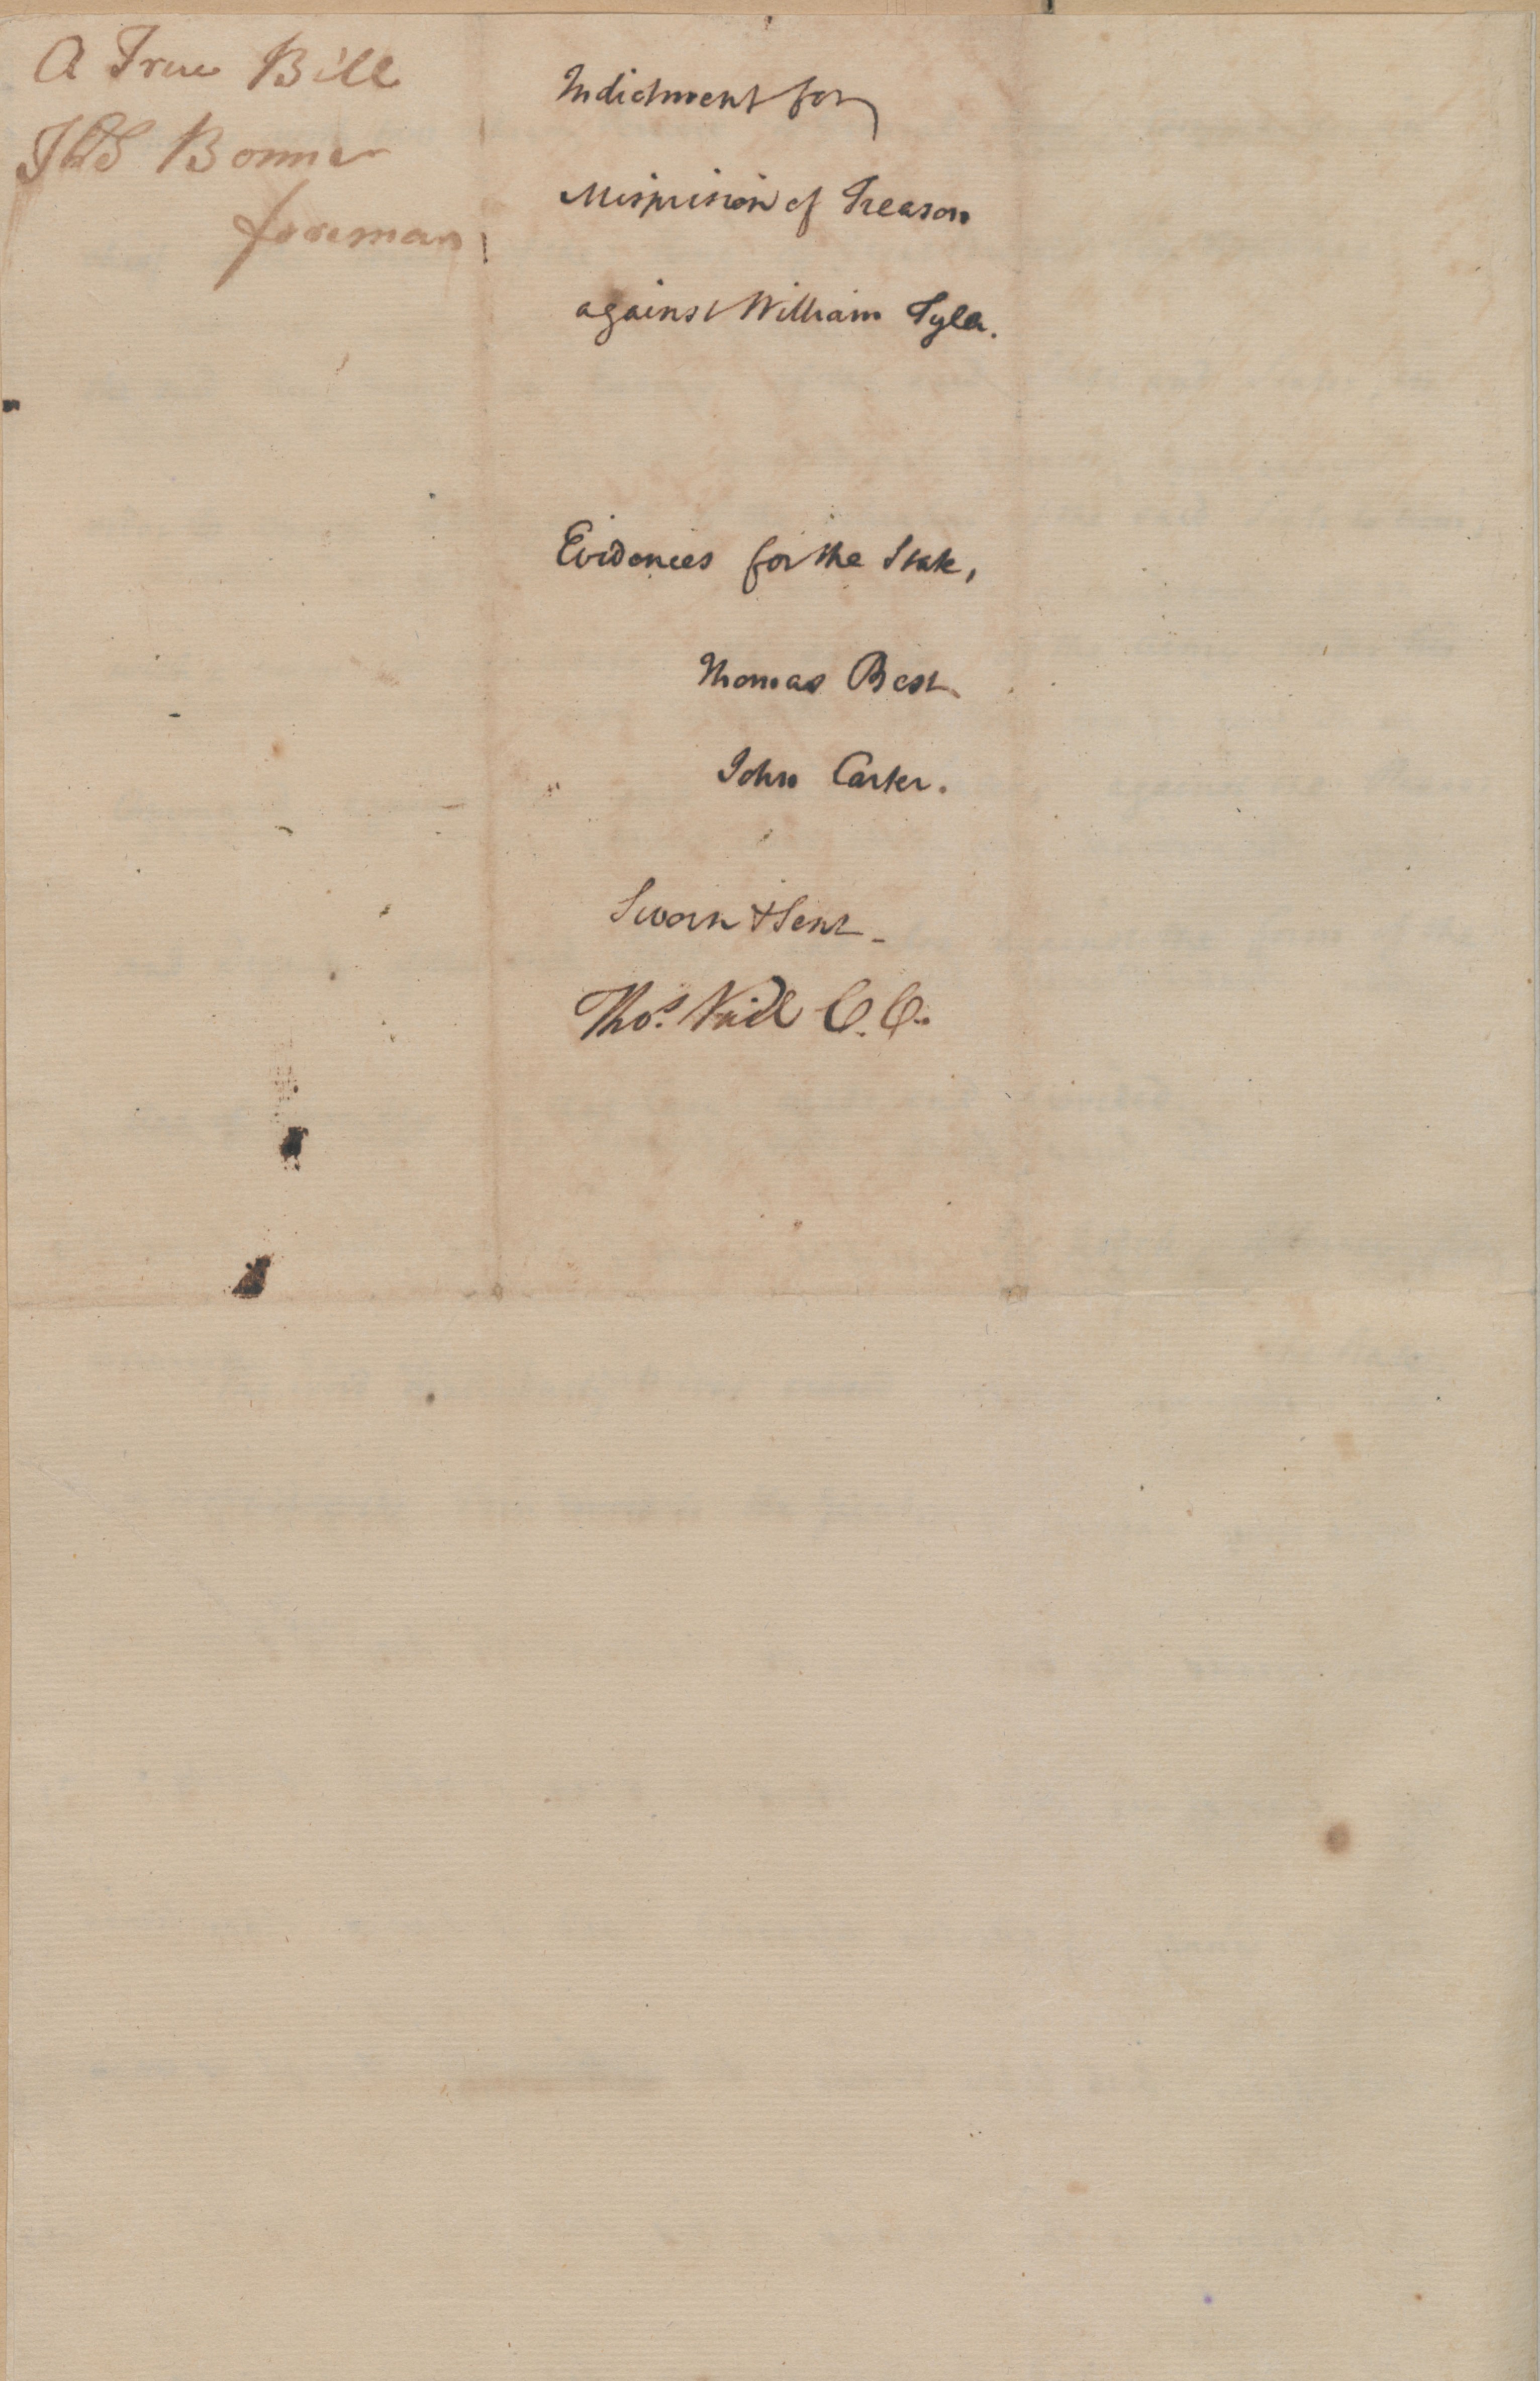 A True Bill
Thos Bonner
foreman
Indictment for
Misprision of Treason
against William Tyler.
Evidences for the State,
Thomas Best
John Carter.
Sworn & Sent -
Thos. C.C.